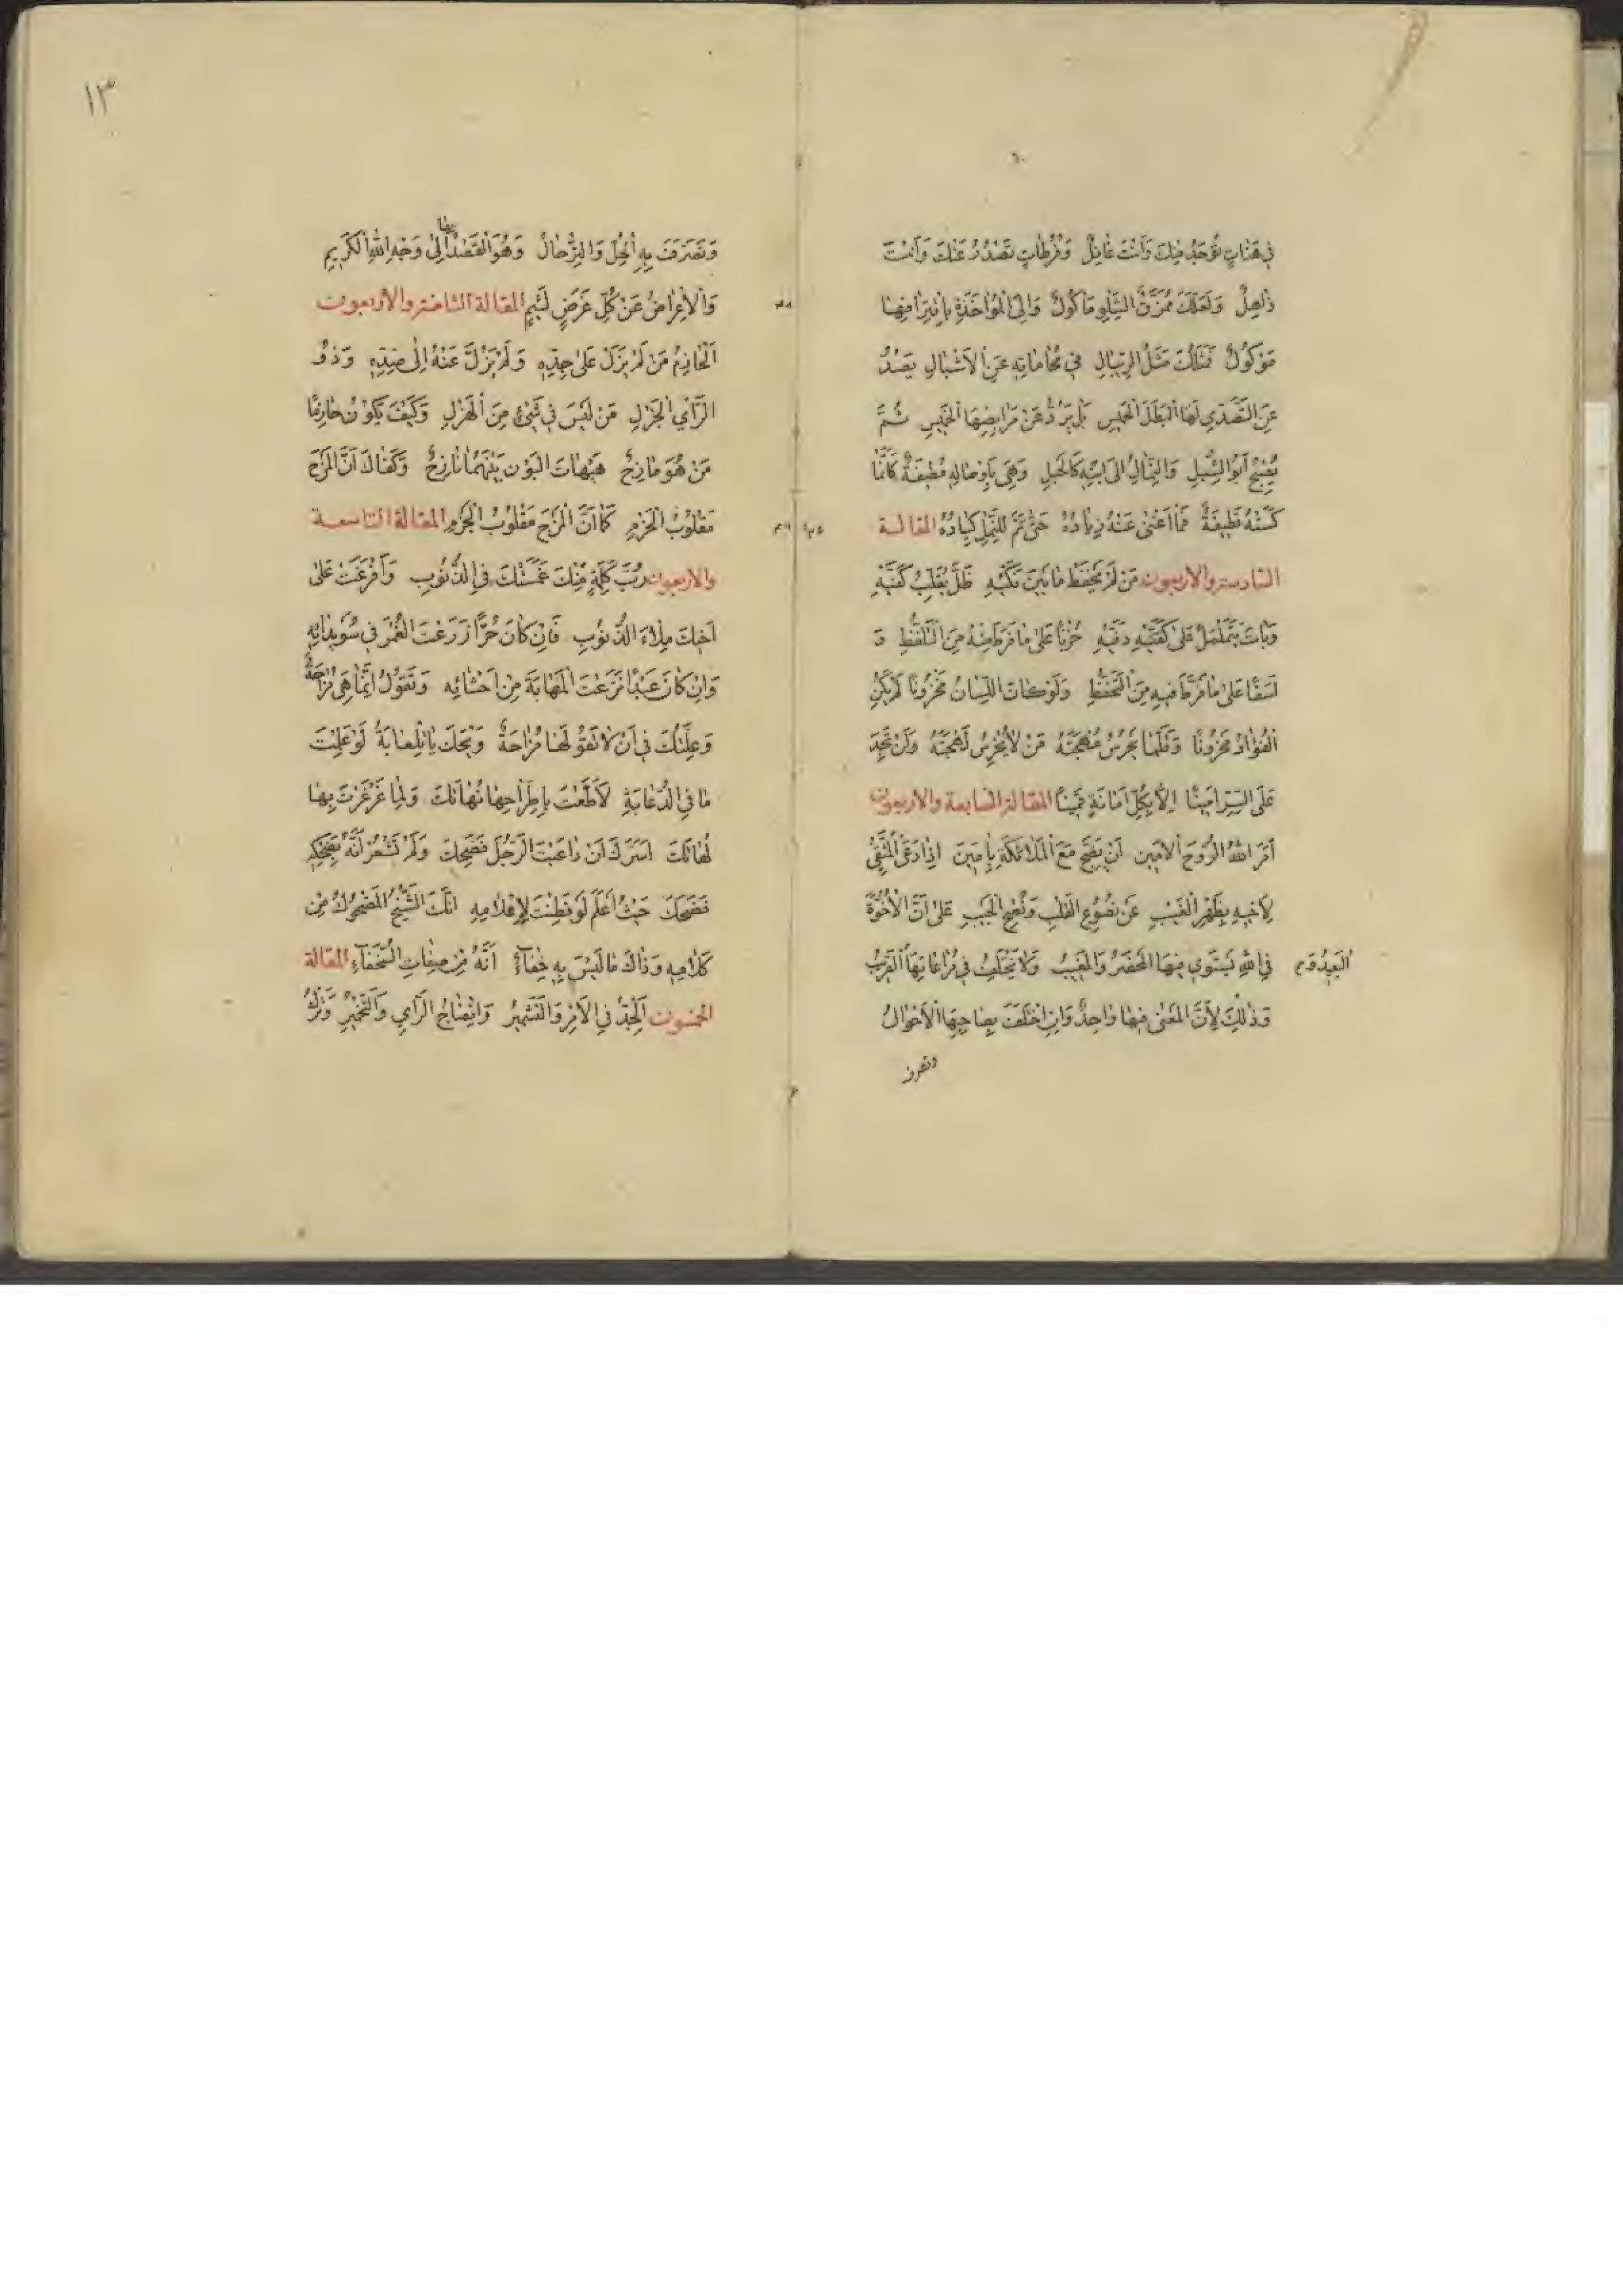 فِي هَنَاتٍ تُؤْخَذُ مِنْكَ وَأَنْتَ غَافِلٌ وَفُرُطَاتٍ تَصْدُرُ عَنْكَ وَأَنْتَ
ذَاهِلٌ وَلَعَلَّكَ مُمَزَّقُ الشِّلْوِ مَأْكُولٌ وَإِلَى الْمُؤَاخَذَةِ بِاقْتِرَافِهَا
مَوْكُولٌ فَمَثَلُكَ مَثَلُ الرِّئْبَالِ فِي مُحَامَاتِهِ عَنِ الْأَشْبَالِ يَصُدُّ
عَنِ التَّصَدِّي لَهَا الْبَطَلَ الْحَمِيسَ بَلْ يَرُدُّ عَنْ مَرَابِضِهَا الْخَمِيسَ ثُمَّ
يُصْبِحُ أَبُو الشِّبْلِ وَالنِّمَالُ إِلَى ابْنِهِ كَالْحَبْلِ وَهِيَ بِأَوْصَالِهِ مُطِيفَةٌ كَأَنَّمَا
كَسَتْهُ قَطِيفَةٌ فَمَا أَغْنَى عَنْهُ ذِيَادُهُ حَتَّى تَمَّ لِلنَّمْلِ كِيَادُهُ المقالة
السادسة والأربعون مَنْ لَمْ يَحْفَظْ مَا بَيْنَ فَكَّيْهِ ظَلَّ يُقَلِّبُ كَفَّيْهِ
وَبَاتَ يَتَمَلْمَلُ عَلَى دَفَّيْهِ حُزْنًا عَلَى مَا فَرَطَ مِنْهُ مِنَ التَّلَفُّظِ وَ
أَسَفًا عَلَى مَا فَرَّطَ فِيهِ مِنَ التَّحَفُّظِ وَلَوْ كَانَ اللِّسَانُ مَخْزُونًا لَمْ يَكُنِ
الْفُؤَادُ مَحْزُونًا وَقَلَّمَا يَحْرُسُ مُهْجَتَهُ مَنْ لَا يُخْرِسُ لَهْجَتَهُ وَلَنْ تَجِدَ
عَلَى السِّرِّ أَمِينًا إِلَّا بِكُلِّ أَمَانَةٍ قَمِينًا المقالة السابعة والأربعون
أَمَرَ اللّٰهُ الرُّوحَ الْأَمِينَ أَنْ يَضِجَّ مَعَ الْمَلَائِكَةِ بِآمِينَ إِذَا دَعَى الْمُتَّقِي
لِأَخِيهِ بِظَهْرِ الْغَيْبِ عَنْ نُصُوعِ الْقَلْبِ وَنُصْحِ الْجَيْبِ عَلَى أَنَّ الْأُخُوَّةَ
فِي اللّٰهِ يَسْتَوِي فِيهَا الْمَحْضَرُ وَالْمَغِيبُ وَلَا يَخْتَلِفُ فِي مُرَاعَاتِهَا الْقَرِيبُ
الْبَعِيدُ وَ
وَذٰلِكَ لِأَنَّ الْمَعْنَى فِيهَا وَاحِدٌ وَإِنِ اخْتَلَفَ بِصَاحِبِهَا الْأَحْوَالُ
وتصرف
١٣
وَتَصَرَّفَ بِهِ الْحِلُّ وَالتِّرْحَالُ وَهُوَ الْقَصْدُ بها إِلَى وَجْهِ اللّٰهِ الْكَرِيمِ
وَالْإِعْرَاضُ عَنْ كُلِّ غَرَضٍ لَئِيمٍ المقالة الثامنة والأربعون
الْحَازِمُ مَنْ لَمْ يَزَلْ عَلَى جِدِّهِ وَلَمْ يَزُلْ عَنْهُ إِلَى ضِدِّهِ وَذُو
الرَّأْيِ الْجَزْلِ مَنْ لَيْسَ فِي شَيْءٍ مِنَ الْهَزْلِ وَكَيْفَ يَكُونُ حَازِمًا
مَنْ هُوَ مَازِحٌ هَيْهَاتَ الْبَوْنُ بَيْنَهُمَا نَازِحٌ وَكَفَاكَ أَنَّ الْمَزْحَ
مَقْلُوبُ الْحَزْمِ كَمَا أَنَّ الْمَزْجَ مَقْلُوبُ الْجَزْمِ المقالة التاسعة
والأربعون رُبَّ كَلِمَةٍ مِنْكَ غَمَسَتْكَ فِي الذُّنُوبِ وَأَفْرَغَتْ عَلَى
أَخِيكَ مِلْءَ الذَّنُوبِ فَإِنْ كَانَ حُرًّا زَرَعَتِ الْغُمْرَ فِي سُوَيْدَائِهِ
وَإِنْ كَانَ عَبْدًا نَزَعَتِ الْمَهَابَةَ مِنْ أَحْشَائِهِ وَتَقُولُ إِنَّمَا هِيَ مُزَاحَةٌ
وَعِلَّتُكَ فِي أَنْ لَا تَقُولَهَا مُزَاحَةٌ وَيْحَكَ يَا تِلْعَابَةُ لَوْ عَلِمْتَ
مَا فِي الدُّعَابَةِ لَأَطَعْتَ بِاطِّرَاحِهَا نُهَاتَكَ وَلَمَا غَرْغَرْتَ بِهَا
لَهَاتَكَ أَسَرَّكَ أَنْ دَاعَبْتَ الرَّجُلَ فَضَحِكَ وَلَمْ تَشْعُرْ أَنَّهُ بِضِحْكِهِ
فَضَحَكَ حَيْثُ أَعْلَمَ لَوْ فَطِنْتَ لِإِعْلَامِهِ أَنَّكَ الشَّيْخُ الْمَضْحُوكُ مِنْ
كَلَامِهِ وَذَاكَ مَا لَيْسَ بِهِ خِفَاءٌ أَنَّهُ مِنْ صِفَاتِ السُّخَفَاءِ المقالة
الخمسون الْجِدُّ فِي الْأَمْرِ وَالتَّشْمِيرُ وَانْتِضَاجُ الرَّأْيِ وَالتَّخْمِيرُ وَتَرْكُ